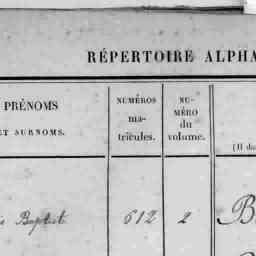 RÉPERTOIRE ALPHA
PRÉNOMS
ET SURNOMS.
NUMÉROS
ma-
tricules.
NU-
MÉRO
du
volume.
(Il do
Baptist 612 2 B